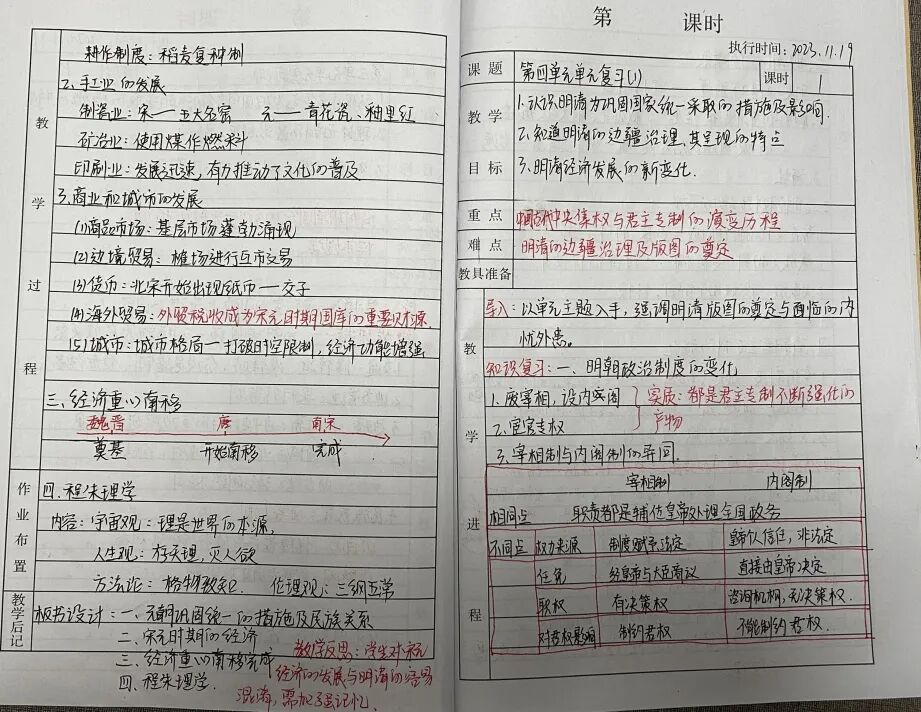 教学过程
耕作制度：稻麦复种制
2.手工业的发展
制瓷业：宋——五大名窑 元——青花瓷、釉里红
矿冶业：使用煤作燃料
印刷业：发展迅速，有力推动了文化的普及
3.商业和城市的发展
(1)商品市场：基层市场蓬勃涌现
(2)边境贸易：榷场进行互市交易
(3)货币：北宋开始出现纸币——交子
(4)海外贸易：外贸税收成为宋元时期国库的重要财源
(5)城市：城市格局—打破时空限制，经济功能增强
三、经济重心南移
魏晋 唐 南宋
奠基 开始南移 完成
作业布置
四.程朱理学
内容：宇宙观：理是世界的本源，
人生观：存天理，灭人欲
方法论：格物致知 伦理观：三纲五常
教学后记
板书设计：一、元朝巩固统一的措施及民族关系
二、宋元时期的经济
三、经济重心南移完成
四、程朱理学.
教学反思：学生对宋元
经济的发展与明清的容易
混淆，需加强记忆、
第 课时
执行时间：2023.11.19
课题 第四单元单元复习(1) 课时 1
教学目标
1.认识明清为巩固国家统一采取的措施及影响.
2.知道明清的边疆治理、其呈现的特点
3.明清经济发展的新变化.
重点 中国古代中央集权与君主专制的演变历程
难点 明清的边疆治理及版图的奠定
教具准备
教学进程
导入：以单元主题入手，强调明清版图的奠定与面临的内
忧外患。
知识复习：一、明朝政治制度的变化
1.废宰相，设内阁 实质：都是君主专制不断强化的
2.宦官专权 产物
3.宰相制与内阁制的异同.
宰相制 内阁制
相同点 职责都是辅佐皇帝处理全国政务
不同点 权力来源 制度赋予法定 皇帝信任，非法定
任免 经皇帝与大臣商议 直接由皇帝决定
职权 有决策权 咨询机构，无决策权.
对君权影响 制约君权 不能制约君权.